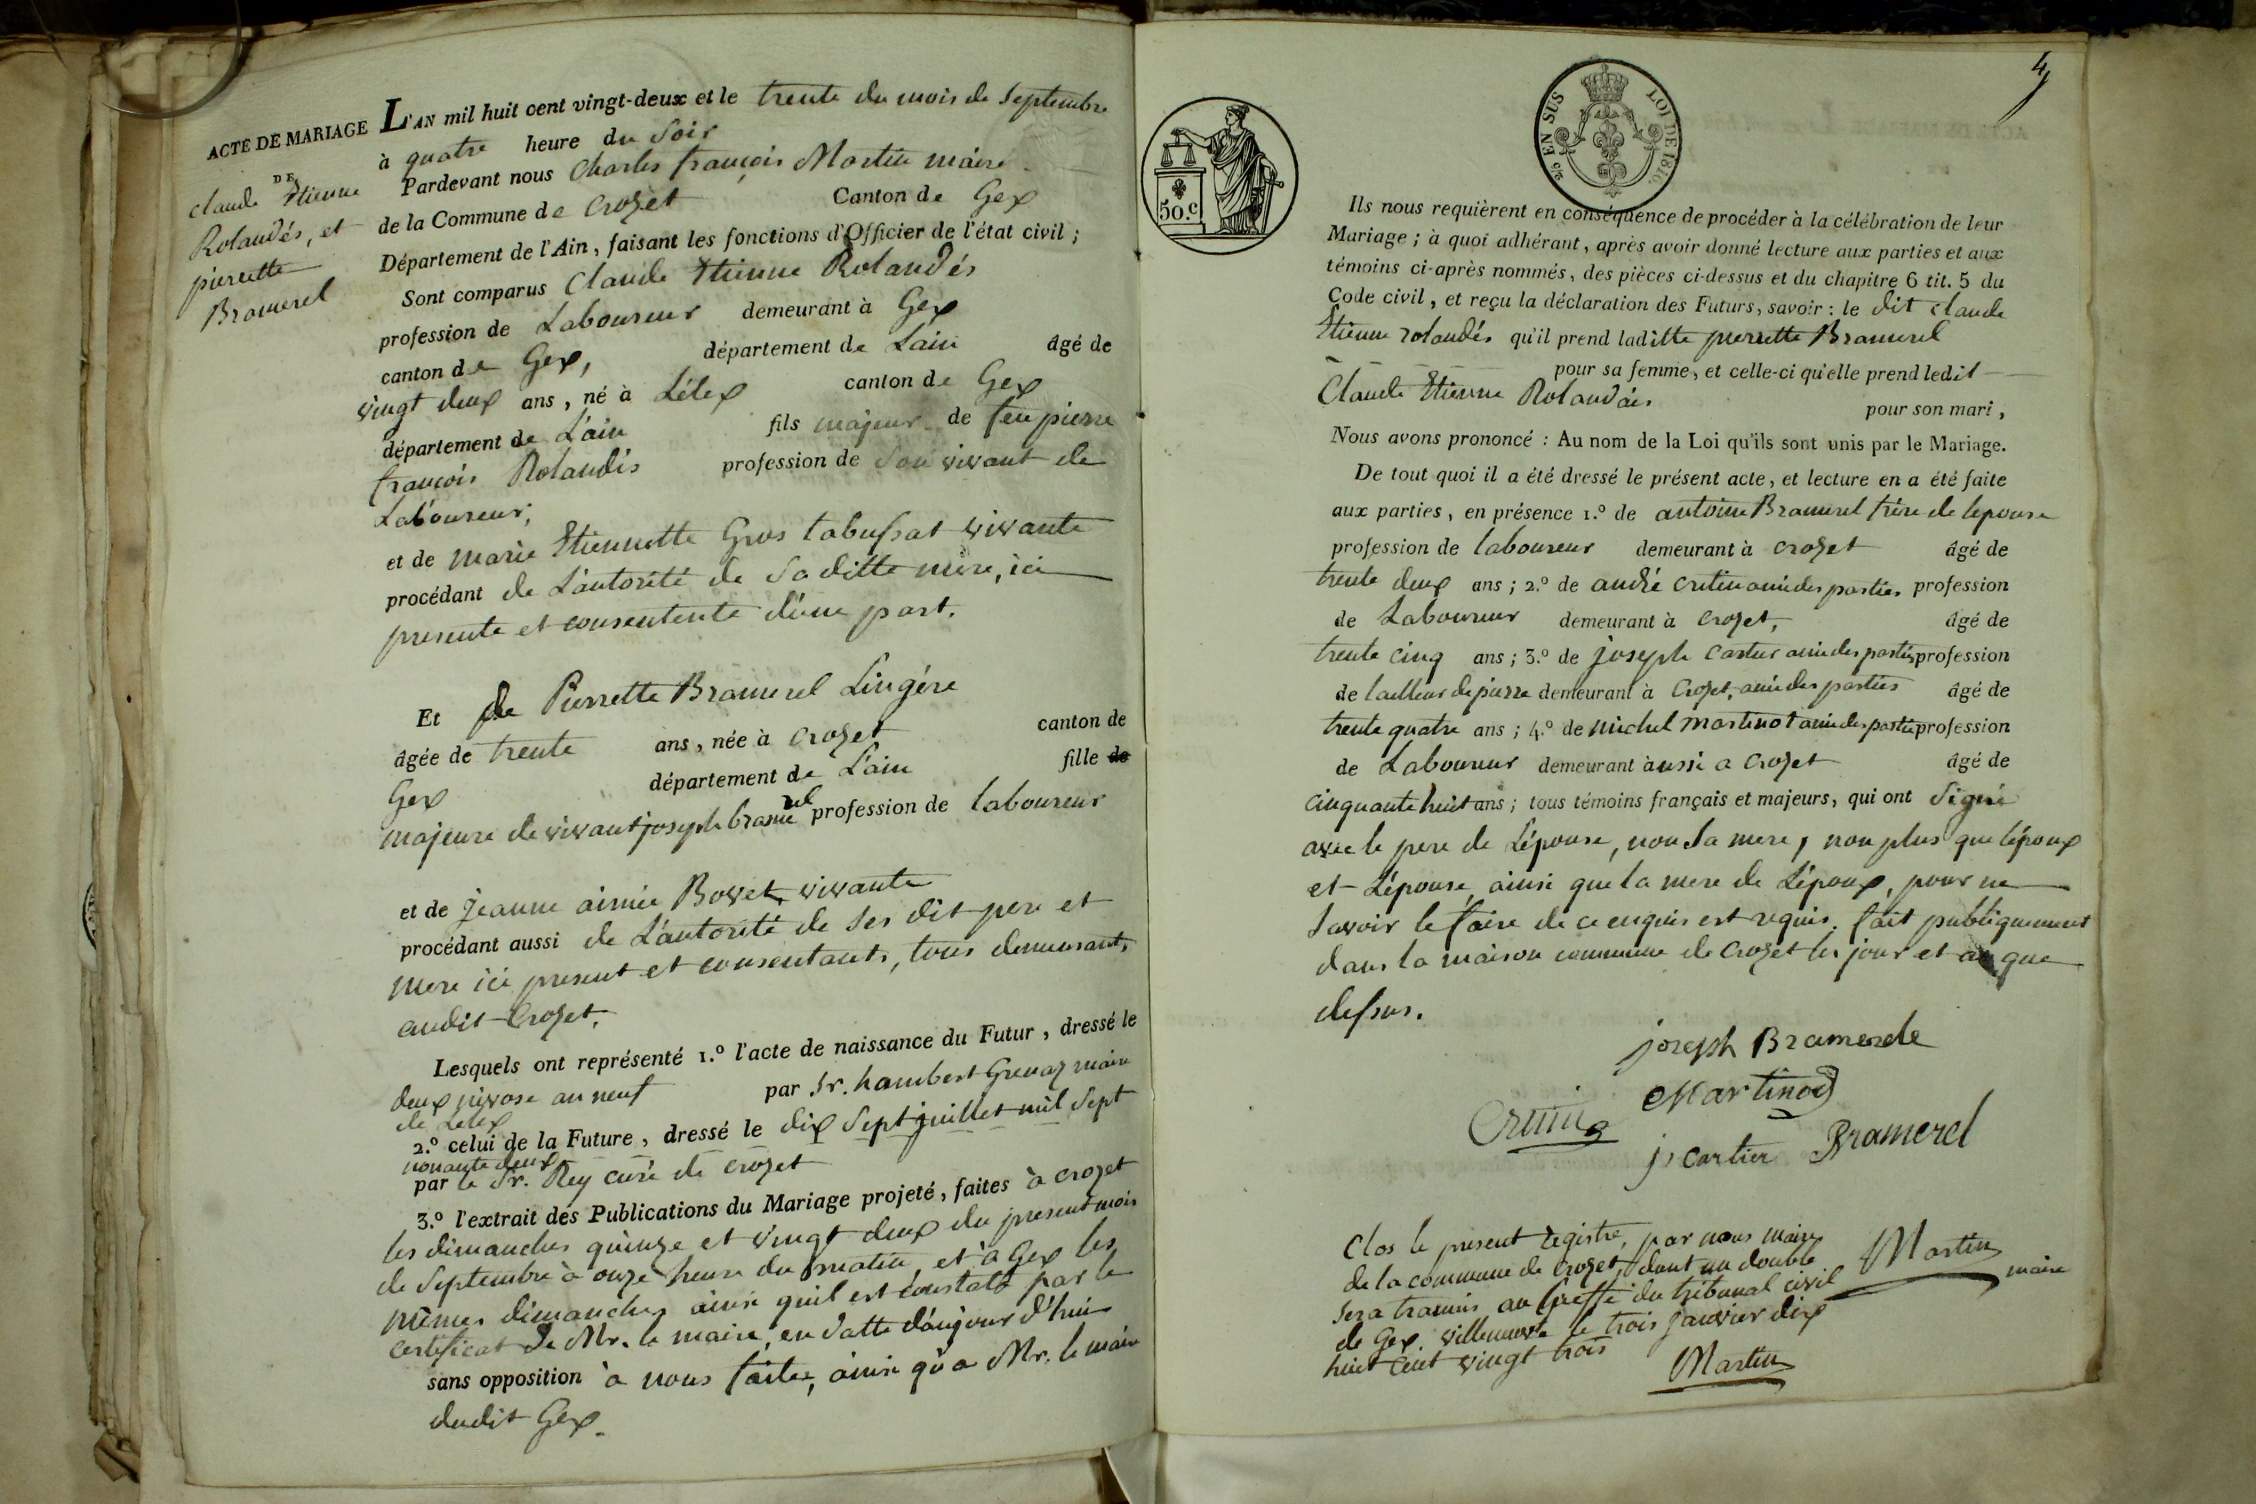 ACTE DE MARIAGE
DE
claude Etienne
Rolandés, et
pierrette
Bramerel
L'AN mil huit cent vingt-deux et le trente du mois de Septembre
à quatre heure du Soir
Pardevant nous Charles françois Martin maire
de la Commune de Crozet Canton de Gex
Département de l'Ain, faisant les fonctions d'Officier de l'état civil ;
Sont comparus Claude Etienne Rolandés
profession de Laboureur demeurant à Gex
canton de Gex, département de Lain âgé de
vingt deux ans, né à Lélex canton de Gex
département de L'ain fils majeur de feu pierre
françois Rolandés profession de Son vivant de
Laboureur,
et de marie Etiennette Gros tabussat vivante
procédant de L'autorité de Sa ditte mère, ici
presente et consentente d'une part.
Et de Pierrette Bramerel Lingère
âgée de trente ans, née à Crozet canton de
Gex département de L'ain fille de
majeure de vivant joseph bramerel profession de laboureur
et de jeanne aimée Bovet vivante
procédant aussi de L'autorité de Ses dit pere et
mere ici present et consentants, tous demeurants
audit Crozet.
Lesquels ont représenté 1.º l'acte de naissance du Futur, dressé le
deux nivose an neuf par Sr. hambert Grenaz maire
de Lelex
2.º celui de la Future, dressé le dix Sept juillet mil Sept
nonante deux
par le Sr. Rey curé de crozet
3.º l'extrait des Publications du Mariage projeté, faites à crozet
les dimanches quinze et vingt deux du present mois
de Septembre à onze heure du matin, et à Gex les
mêmes dimanches ainsi quil est constaté par le
certificat de Mr. le maire, en datte d'aujour d'hui
sans opposition à nous faitte, ainsi qu'a Mr. le maire
dudit Gex.
4
50.c
2/10 EN SUS LOI DE 1816.
Ils nous requièrent en conséquence de procéder à la célébration de leur
Mariage ; à quoi adhérant, après avoir donné lecture aux parties et aux
témoins ci-après nommés, des pièces ci-dessus et du chapitre 6 tit. 5 du
Code civil, et reçu la déclaration des Futurs, savoir : le dit claude
Etienne rolandés qu'il prend laditte pierrette Bramerel
pour sa femme, et celle-ci qu'elle prend ledit
Claude Etienne Rolandés pour son mari,
Nous avons prononcé : Au nom de la Loi qu'ils sont unis par le Mariage.
De tout quoi il a été dressé le présent acte, et lecture en a été faite
aux parties, en présence 1.º de antoine Bramerel frère de lepouse
profession de laboureur demeurant à crozet âgé de
trente deux ans ; 2.º de andré critin ami des parties profession
de Laboureur demeurant à crozet, âgé de
trente cinq ans ; 3.º de joseph cartier ami des parties profession
de tailleur de pierre demeurant à Crozet, ami des parties âgé de
trente quatre ans ; 4.º de michel martinot ami des parties profession
de Laboureur demeurant aussi a crozet âgé de
cinquante huit ans ; tous témoins français et majeurs, qui ont Signé
avec le pere de L'épouse, non Sa mere, non plus que lépoux
et L'épouse, ainsi que la mere de L'époux, pour ne
Savoir le faire de ce enquis est requis. fait publiquement
dans la maison commune de Crozet les jour et an que
dessus.
joseph Bramerel
Martinod
j cartier Bramerel
Clos le present registre, par nous maire
de la commune de Crozet, dont un double
Sera tramis au Greffe du tribunal civil
de Gex. villeneuve le trois janvier dix
huit cent vingt trois
Martin
maire
Martin